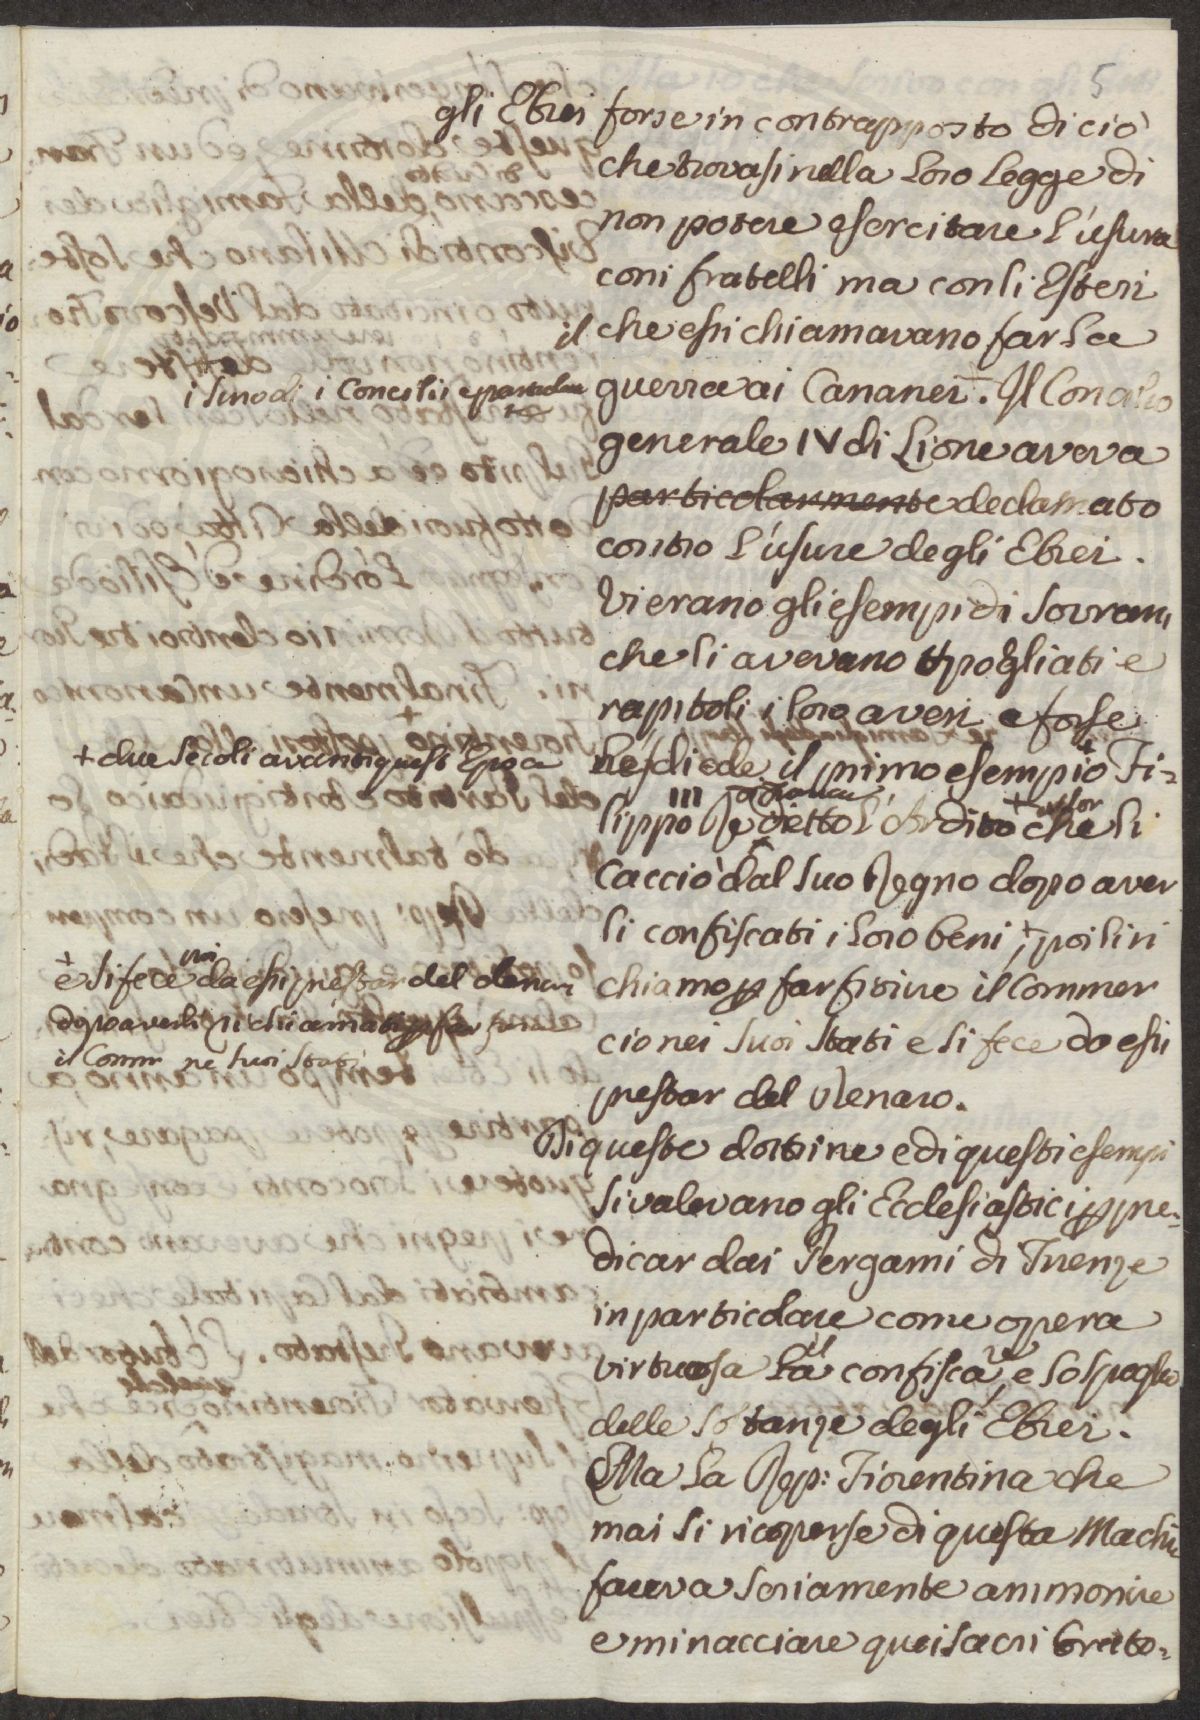 5
gli Ebrei forse in contrapposto di ciò
che trovasi nella loro Legge di
non potere esercitare l'usura
coni fratelli ma con li Esteri
il che essi chiamavano far la
guerra ai Cananei. Il Concilio
i Sinodi i Concilii e
generale IV di Lione aveva
particolarmente declamato
contro l'usure degli Ebrei.
Vi erano gli esempi di Sovrani
che li avevano spogliati e
rapitoli i loro averi e forse
ne diede il primo esempio + Fi=
+ due secoli avanti quest'Epoca
lippo III Re detto l'Ardito + che li
cacciò dal suo Regno dopo aver
li confiscati i loro beni +, poi li ri
+ e si fece poi da essi prestar del denaro
chiamo p far fiorire il Commer
dopo averli richiamati p far fiorire
cio nei suoi Stati e si fece da essi
il Comm ne suoi Stati
prestar del denaro.
Di queste dottrine e di questi esempi
si valevano gli Ecclesiastici p pre=
dicar dai Pergami di Firenze
in particolare come opera
virtuosa la confisca, e lo spoglio
delle sostanze degli Ebrei.
Ma la Rep: Fiorentina che
mai si ricoperse di questa Machia
faceva seriamente ammonire
e minacciare quei sacri Orato=